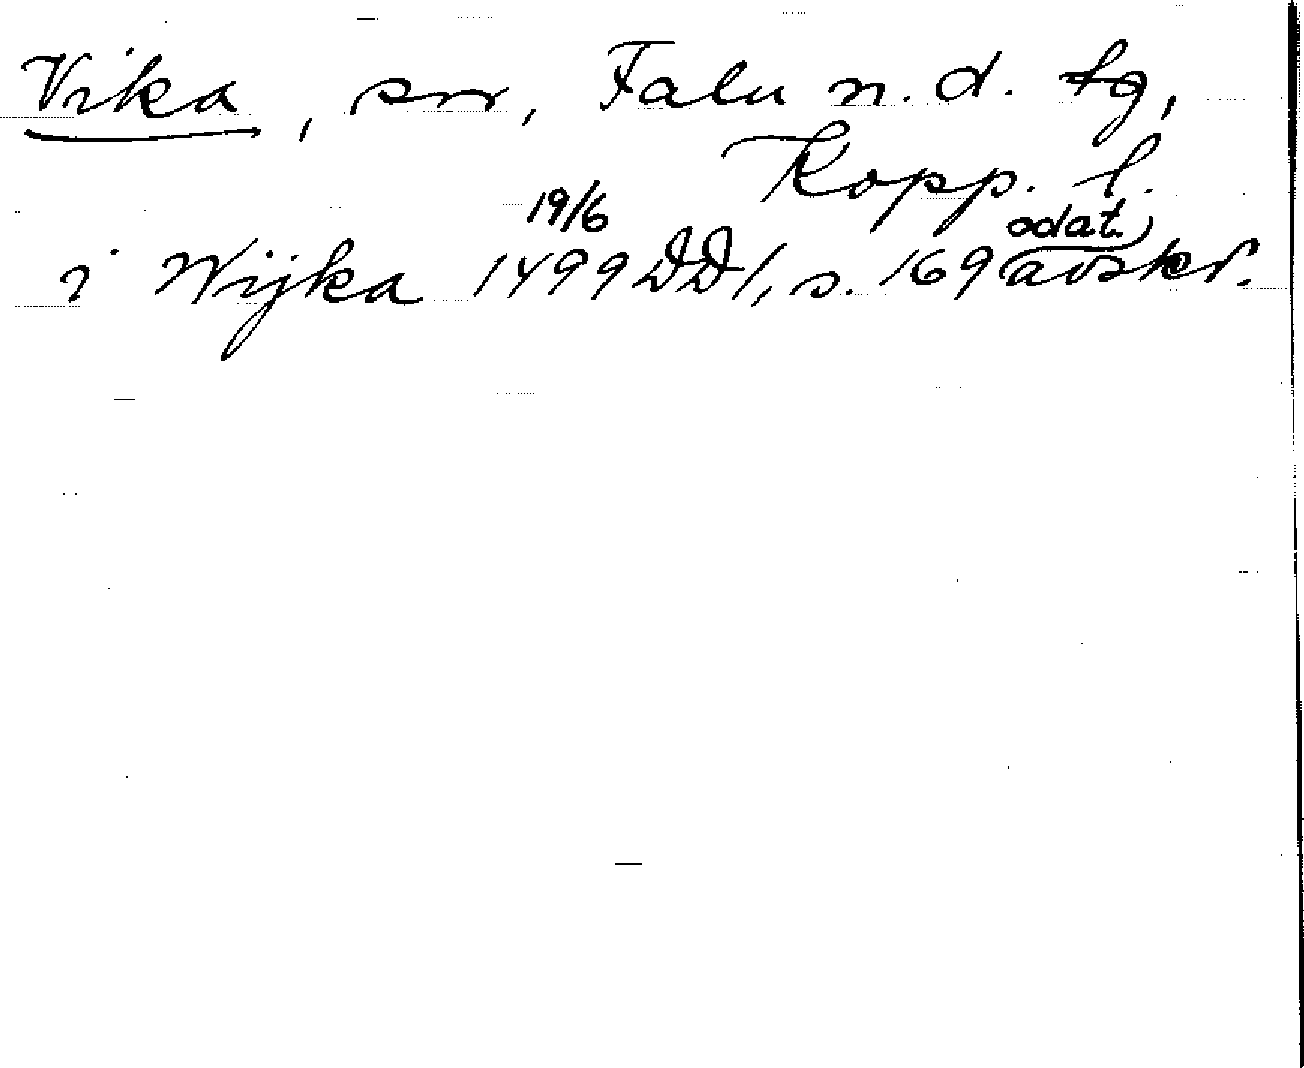 Vika, sn, Falu n. d. tg,
Kopp. l.
i Wijka 19/6 1499 DD 1, s. 169 (odat. avskr.